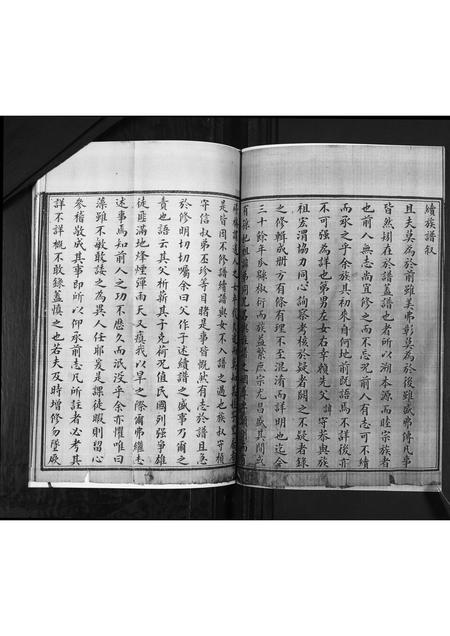 續族譜叙
且夫莫為於前雖美弗彰莫為於後雖盛弗傳凡事
皆然矧在於譜蓋譜也者所以溯本源而睦宗族者
也前人無志尚宜修之而不忘况前人有志可不續
而承之乎余族其初來自何地前既語焉不詳後亦
不可强為詳也第男左女右幸賴先父諱守泰與族
祖宏渭協力同心詢察考核於疑者闕之不疑者錄
之修輯成册方有條有理不至混淆而詳明也迄今
三十餘年瓜緜椒衍而族益繁庶宗尤昌盛其間或
是皆因不修譜續譜與女不入譜之過也族叔守楨
守信叔弟丕珍等目睹是事皆慨然有志於譜且急
於修明切切囑余曰父作子述續譜之盛事乃爾之
責也語云其父析薪其子克荷况值民國列强爭雄
徒匪滿地烽煙彈雨天又瘼我以旱之際爾弗繼志
述事焉知前人之功不歷久而泯没乎余亦懼唯曰
藻雖不敏敢諉之為異人任耶爰是課徒暇則留心
參稽敬成其事即所以仰承前志凡所註者必考其
詳不詳概不敢錄蓋慎之也若夫及時增修勿墜厥